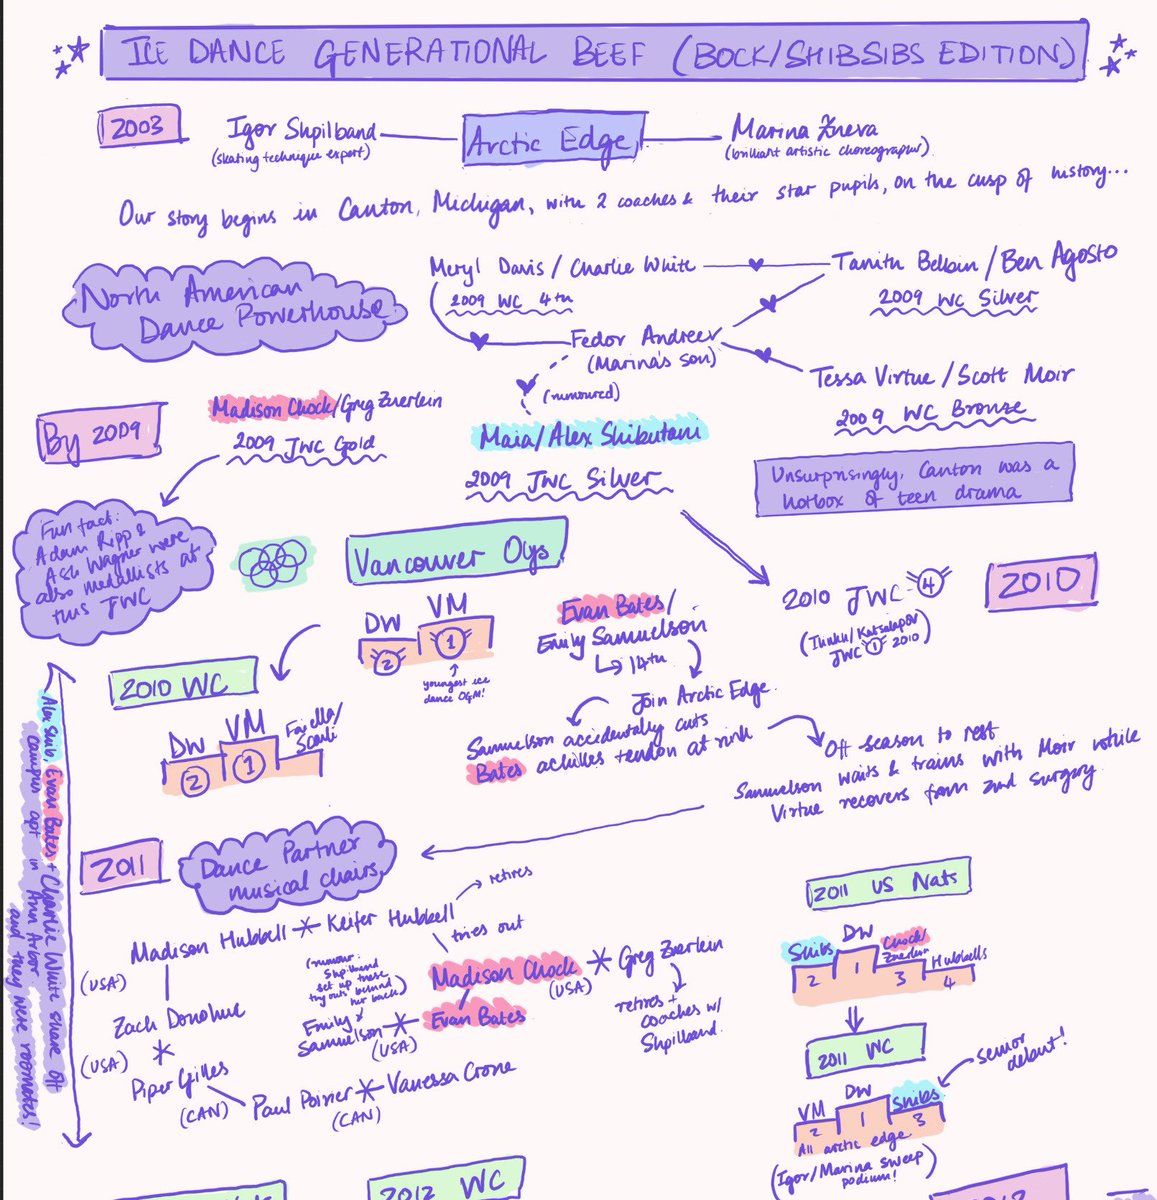 ICE DANCE GENERATIONAL BEEF (BOCK/SHIBSIBS EDITION)
2003
Igor Shpilband
(skating technique expert)
Arctic Edge
Marina Zueva
(brilliant artistic choreographer)
Our story begins in Canton, Michigan, with 2 coaches & their star pupils, on the cusp of history...
North American
Dance Powerhouse
Meryl Davis / Charlie White
2009 WC 4th
Tanith Belbin / Ben Agosto
2009 WC Silver
Fedor Andreev
(Marina's son)
(rumoured)
Tessa Virtue / Scott Moir
2009 WC Bronze
By 2009
Madison Chock/Greg Zuerlein
2009 JWC Gold
Maia/Alex Shibutani
2009 JWC Silver
Unsurprisingly, Canton was a
hotbox of teen drama
Fun fact:
Adam Rippon &
Ash Wagner were
also medallists at
this JWC
Vancouver Olys
DW
VM
2
1
youngest ice
dance OGM!
Evan Bates/
Emily Samuelson
14th
Join Arctic Edge
Samuelson accidentally cuts
Bates achilles tendon at rink
Off season to rest
Samuelson waits & trains with Moir while
Virtue recovers from 2nd surgery
2010 JWC 4
(Ilinykh/Katsalapov
JWC 1 2010)
2010
2010 WC
DW
VM
Faiella/
Scali
2
1
Alex Shib, Evan Bates + Charlie White share off
campus apt in Ann Arbor
and they were roomates!
2011
Dance Partner
musical chairs
Madison Hubbell
Keifer Hubbell
retires
tries out
(USA)
Zach Donohue
(USA)
Piper Gilles
(CAN)
Paul Poirier
(CAN)
Vanessa Crone
(rumour:
Shpilband
set up these
try outs behind
her back)
Emily
Samuelson
(USA)
Madison Chock
(USA)
Evan Bates
Greg Zuerlein
retires +
coaches w/
Shpilband
2011 US Nats
Shibs
DW
Chock/
Zuerlein
Hubbells
2
1
3
4
2011 WC
senior
debut!
VM
DW
Shibs
2
1
3
All arctic edge
(Igor/Marina sweep
podium!)
2012 WC